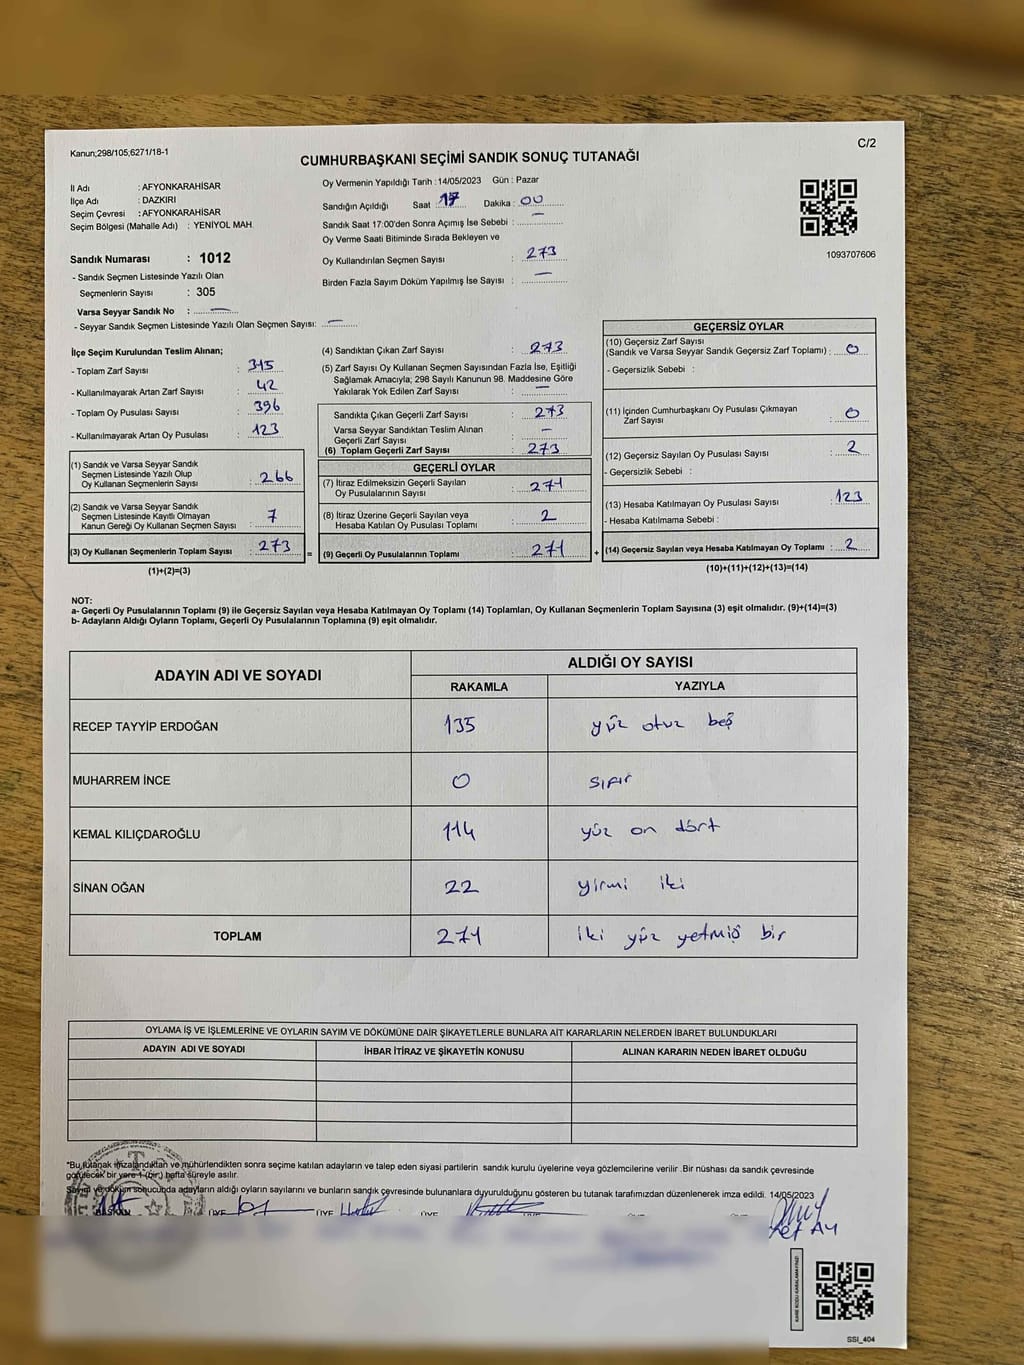 Kanun;298/105;6271/18-1
C/2
CUMHURBAŞKANI SEÇİMİ SANDIK SONUÇ TUTANAĞI
İl Adı : AFYONKARAHİSAR
İlçe Adı : DAZKIRI
Seçim Çevresi : AFYONKARAHİSAR
Seçim Bölgesi (Mahalle Adı) : YENİYOL MAH.
Sandık Numarası : 1012
- Sandık Seçmen Listesinde Yazılı Olan
Seçmenlerin Sayısı : 305
Varsa Seyyar Sandık No : —
- Seyyar Sandık Seçmen Listesinde Yazılı Olan Seçmen Sayısı: —
Oy Vermenin Yapıldığı Tarih : 14/05/2023 Gün : Pazar
Sandığın Açıldığı Saat 17 Dakika : 00
Sandık Saat 17:00'den Sonra Açımış İse Sebebi : —
Oy Verme Saati Bitiminde Sırada Bekleyen ve
Oy Kullandırılan Seçmen Sayısı : 273
Birden Fazla Sayım Döküm Yapılmış İse Sayısı : —
1093707606
İlçe Seçim Kurulundan Teslim Alınan;
- Toplam Zarf Sayısı : 315
- Kullanılmayarak Artan Zarf Sayısı : 42
- Toplam Oy Pusulası Sayısı : 396
- Kullanılmayarak Artan Oy Pusulası : 123
(1) Sandık ve Varsa Seyyar Sandık
Seçmen Listesinde Yazılı Olup
Oy Kullanan Seçmenlerin Sayısı : 266
(2) Sandık ve Varsa Seyyar Sandık
Seçmen Listesinde Kayıtlı Olmayan
Kanun Gereği Oy Kullanan Seçmen Sayısı : 7
(3) Oy Kullanan Seçmenlerin Toplam Sayısı : 273
(1)+(2)=(3)
=
(4) Sandıktan Çıkan Zarf Sayısı : 273
(5) Zarf Sayısı Oy Kullanan Seçmen Sayısından Fazla İse, Eşitliği
Sağlamak Amacıyla; 298 Sayılı Kanunun 98. Maddesine Göre
Yakılarak Yok Edilen Zarf Sayısı : —
Sandıkta Çıkan Geçerli Zarf Sayısı : 273
Varsa Seyyar Sandıktan Teslim Alınan
Geçerli Zarf Sayısı : —
(6) Toplam Geçerli Zarf Sayısı : 273
GEÇERLİ OYLAR
(7) İtiraz Edilmeksizin Geçerli Sayılan
Oy Pusulalarının Sayısı : 271
(8) İtiraz Üzerine Geçerli Sayılan veya
Hesaba Katılan Oy Pusulası Toplamı : 2
(9) Geçerli Oy Pusulalarının Toplamı : 271
+
GEÇERSİZ OYLAR
(10) Geçersiz Zarf Sayısı
(Sandık ve Varsa Seyyar Sandık Geçersiz Zarf Toplamı) : 0
- Geçersizlik Sebebi :
(11) İçinden Cumhurbaşkanı Oy Pusulası Çıkmayan
Zarf Sayısı : 0
(12) Geçersiz Sayılan Oy Pusulası Sayısı : 2
- Geçersizlik Sebebi :
(13) Hesaba Katılmayan Oy Pusulası Sayısı : 123
- Hesaba Katılmama Sebebi :
(14) Geçersiz Sayılan veya Hesaba Katılmayan Oy Toplamı : 2
(10)+(11)+(12)+(13)=(14)
NOT:
a- Geçerli Oy Pusulalarının Toplamı (9) ile Geçersiz Sayılan veya Hesaba Katılmayan Oy Toplamı (14) Toplamları, Oy Kullanan Seçmenlerin Toplam Sayısına (3) eşit olmalıdır. (9)+(14)=(3)
b- Adayların Aldığı Oyların Toplamı, Geçerli Oy Pusulalarının Toplamına (9) eşit olmalıdır.
ADAYIN ADI VE SOYADI
ALDIĞI OY SAYISI
RAKAMLA YAZIYLA
RECEP TAYYİP ERDOĞAN 135 yüz otuz beş
MUHARREM İNCE 0 sıfır
KEMAL KILIÇDAROĞLU 114 yüz on dört
SİNAN OĞAN 22 yirmi iki
TOPLAM 271 iki yüz yetmiş bir
OYLAMA İŞ VE İŞLEMLERİNE VE OYLARIN SAYIM VE DÖKÜMÜNE DAİR ŞİKAYETLERLE BUNLARA AİT KARARLARIN NELERDEN İBARET BULUNDUKLARI
ADAYIN ADI VE SOYADI İHBAR İTİRAZ VE ŞİKAYETİN KONUSU ALINAN KARARIN NEDEN İBARET OLDUĞU
"Bu tutanak imzalandıktan ve mühürlendikten sonra seçime katılan adayların ve talep eden siyasi partilerin sandık kurulu üyelerine veya gözlemcilerine verilir .Bir nüshası da sandık çevresinde
görülecek bir yere 1 (bir) hafta süreyle asılır.
Sayım ve döküm sonucunda adayların aldığı oyların sayılarını ve bunların sandık çevresinde bulunanlara duyurulduğunu gösteren bu tutanak tarafımızdan düzenlenerek imza edildi. 14/05/2023
BAŞKAN ÜYE ÜYE ÜYE ÜYE
KARE KODU KARALAMAYINIZ!
SSI_404